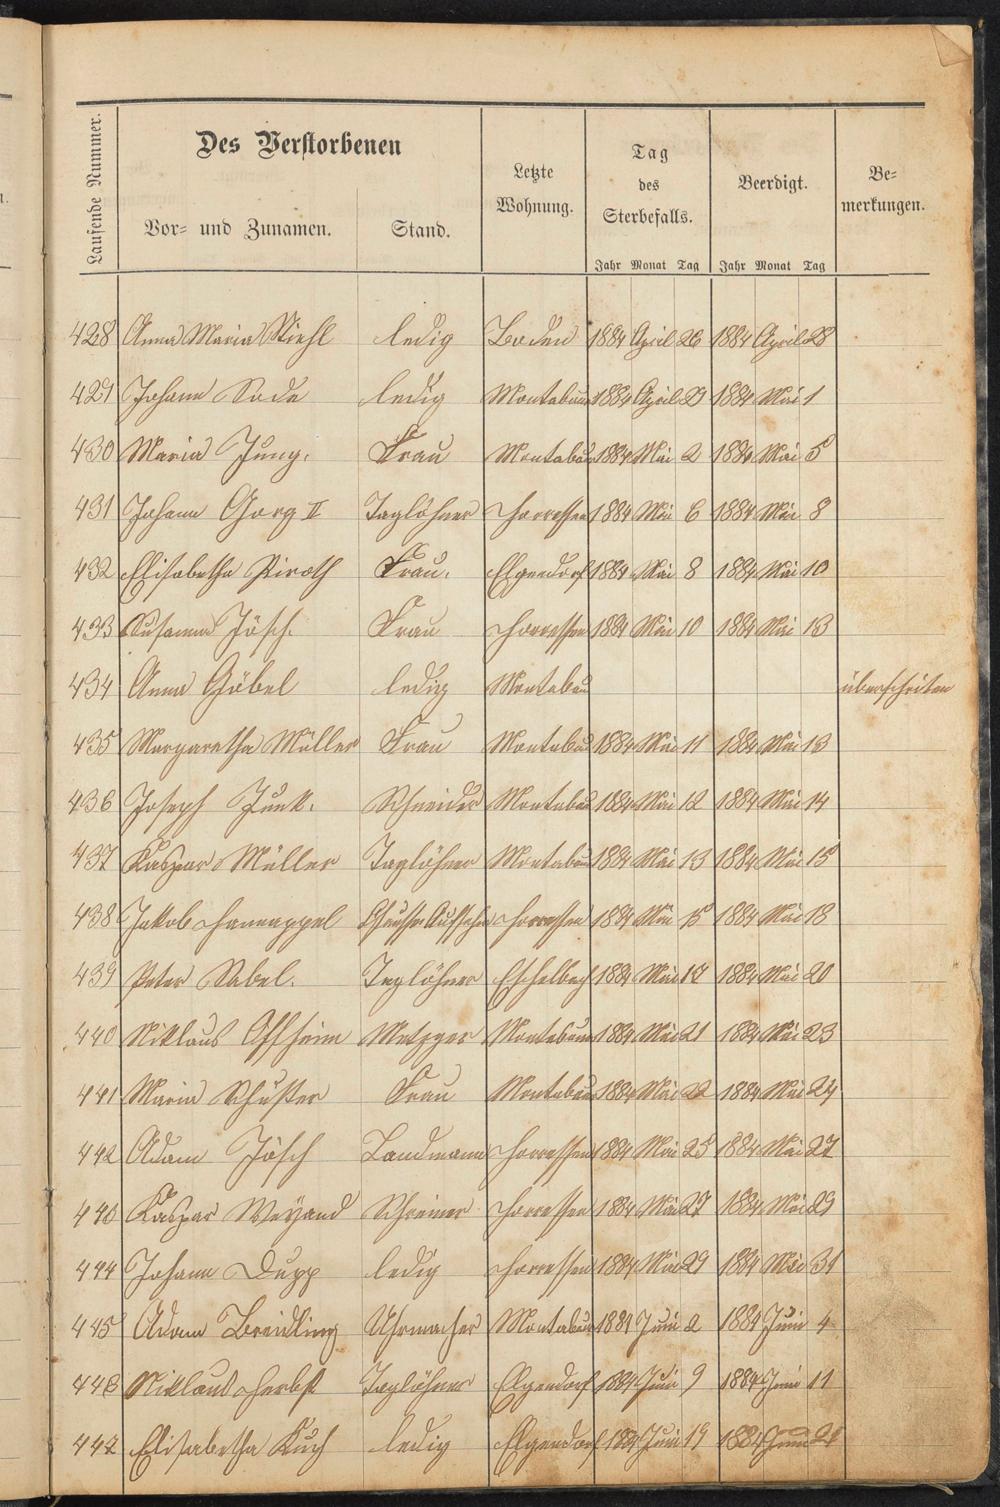 Laufende Nummer.
Des Verstorbenen
Vor- und Zunamen.
Stand.
Letzte Wohnung.
Tag des Sterbefalls.
Beerdigt.
Bemerkungen.
Jahr Monat Tag Jahr Monat Tag
428 Anna Maria Diehl ledig Boden 1884 April 26 1884 April 28
429 Johann Sode ledig Montabaur 1884 April 29 1884 Mai 1
430 Maria Jung. Frau Montabaur 1884 Mai 2 1884 Mai 5
431 Johann Görg II Taglöhner Horressen 1884 Mai 6 1884 Mai 8
432 Elisabetha Piroth Frau. Elgendorf 1884 Mai 8 1884 Mai 10
433 Susanna Jösch. Frau Horressen 1884 Mai 10 1884 Mai 13
434 Anna Göbel ledig Montabau überschriben
435 Margaretha Müller Frau Montabau 1884 Mai 11 1884 Mai 13
436 Joseph Junk. Schneider Montabau 1884 Mai 12 1884 Mai 14
437 Kaspar Müller Taglöhner Montabau 1884 Mai 13 1884 Mai 15
438 Jakob Hannappel Aufseher Horressen 1884 Mai 15 1884 Mai 18
439 Peter Sabel. Taglöhner Eschelbach 1884 Mai 17 1884 Mai 20
440 Niklaus Offheim Metzger Montabaur 1884 Mai 21 1884 Mai 23
441 Maria Schuster Frau Montabaur 1884 Mai 22 1884 Mai 24
442 Adam Jösch Landmann Horressen 1884 Mai 25 1884 Mai 27
443 Kaspar Weyand Schreiner Horressen 1884 Mai 27 1884 Mai 29
444 Johann Dupp ledig Horressen 1884 Mai 29 1884 Mai 31
445 Adam Breidling Uhrmacher Montabaur 1884 Juni 2 1884 Juni 4
446 Niklaus Herbst Taglöhner Elgendorf 1884 Juni 9 1884 Juni 11
447 Elisabetha Kuch ledig Elgendorf 1884 Juni 19 1884 Juni